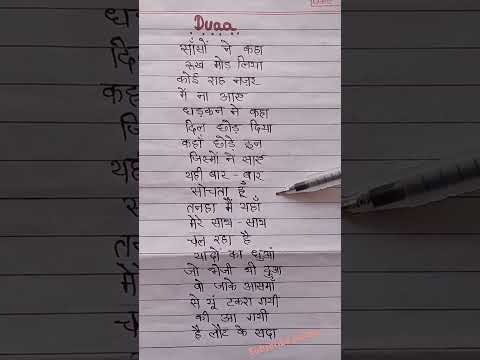 Duaa
साँसों ने कहा
रुख मोड़ लिया
कोई राह नज़र
में ना आए
धड़कन ने कहा
दिल छोड़ दिया
कहाँ छोड़े इन
जिस्मों ने साए
यही बार - बार
सोचता हूँ
तनहा मैं यहाँ
मेरे साथ - साथ
चल रहा है
यादों का धुआं
जो भेजी थी दुआ
वो जाके आसमाँ
से यूं टकरा गयी
की आ गयी
है लौट के सदा